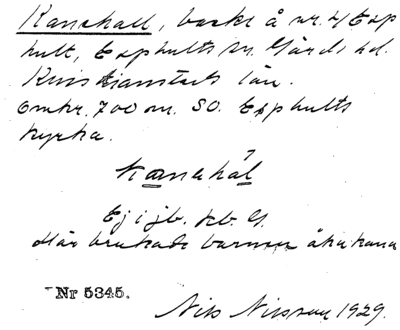 Kanehall, backe å nr. 4 Esp
hult, Esphults sn. Gärds hd.
Kristianstads län.
Omkr. 700 m. SO. Esphults
kyrka.
kanehâl
Ej i jb. kb. G.
Här brukade barnen åka kana
Nr 5345.
Nils Nilsson 1929.